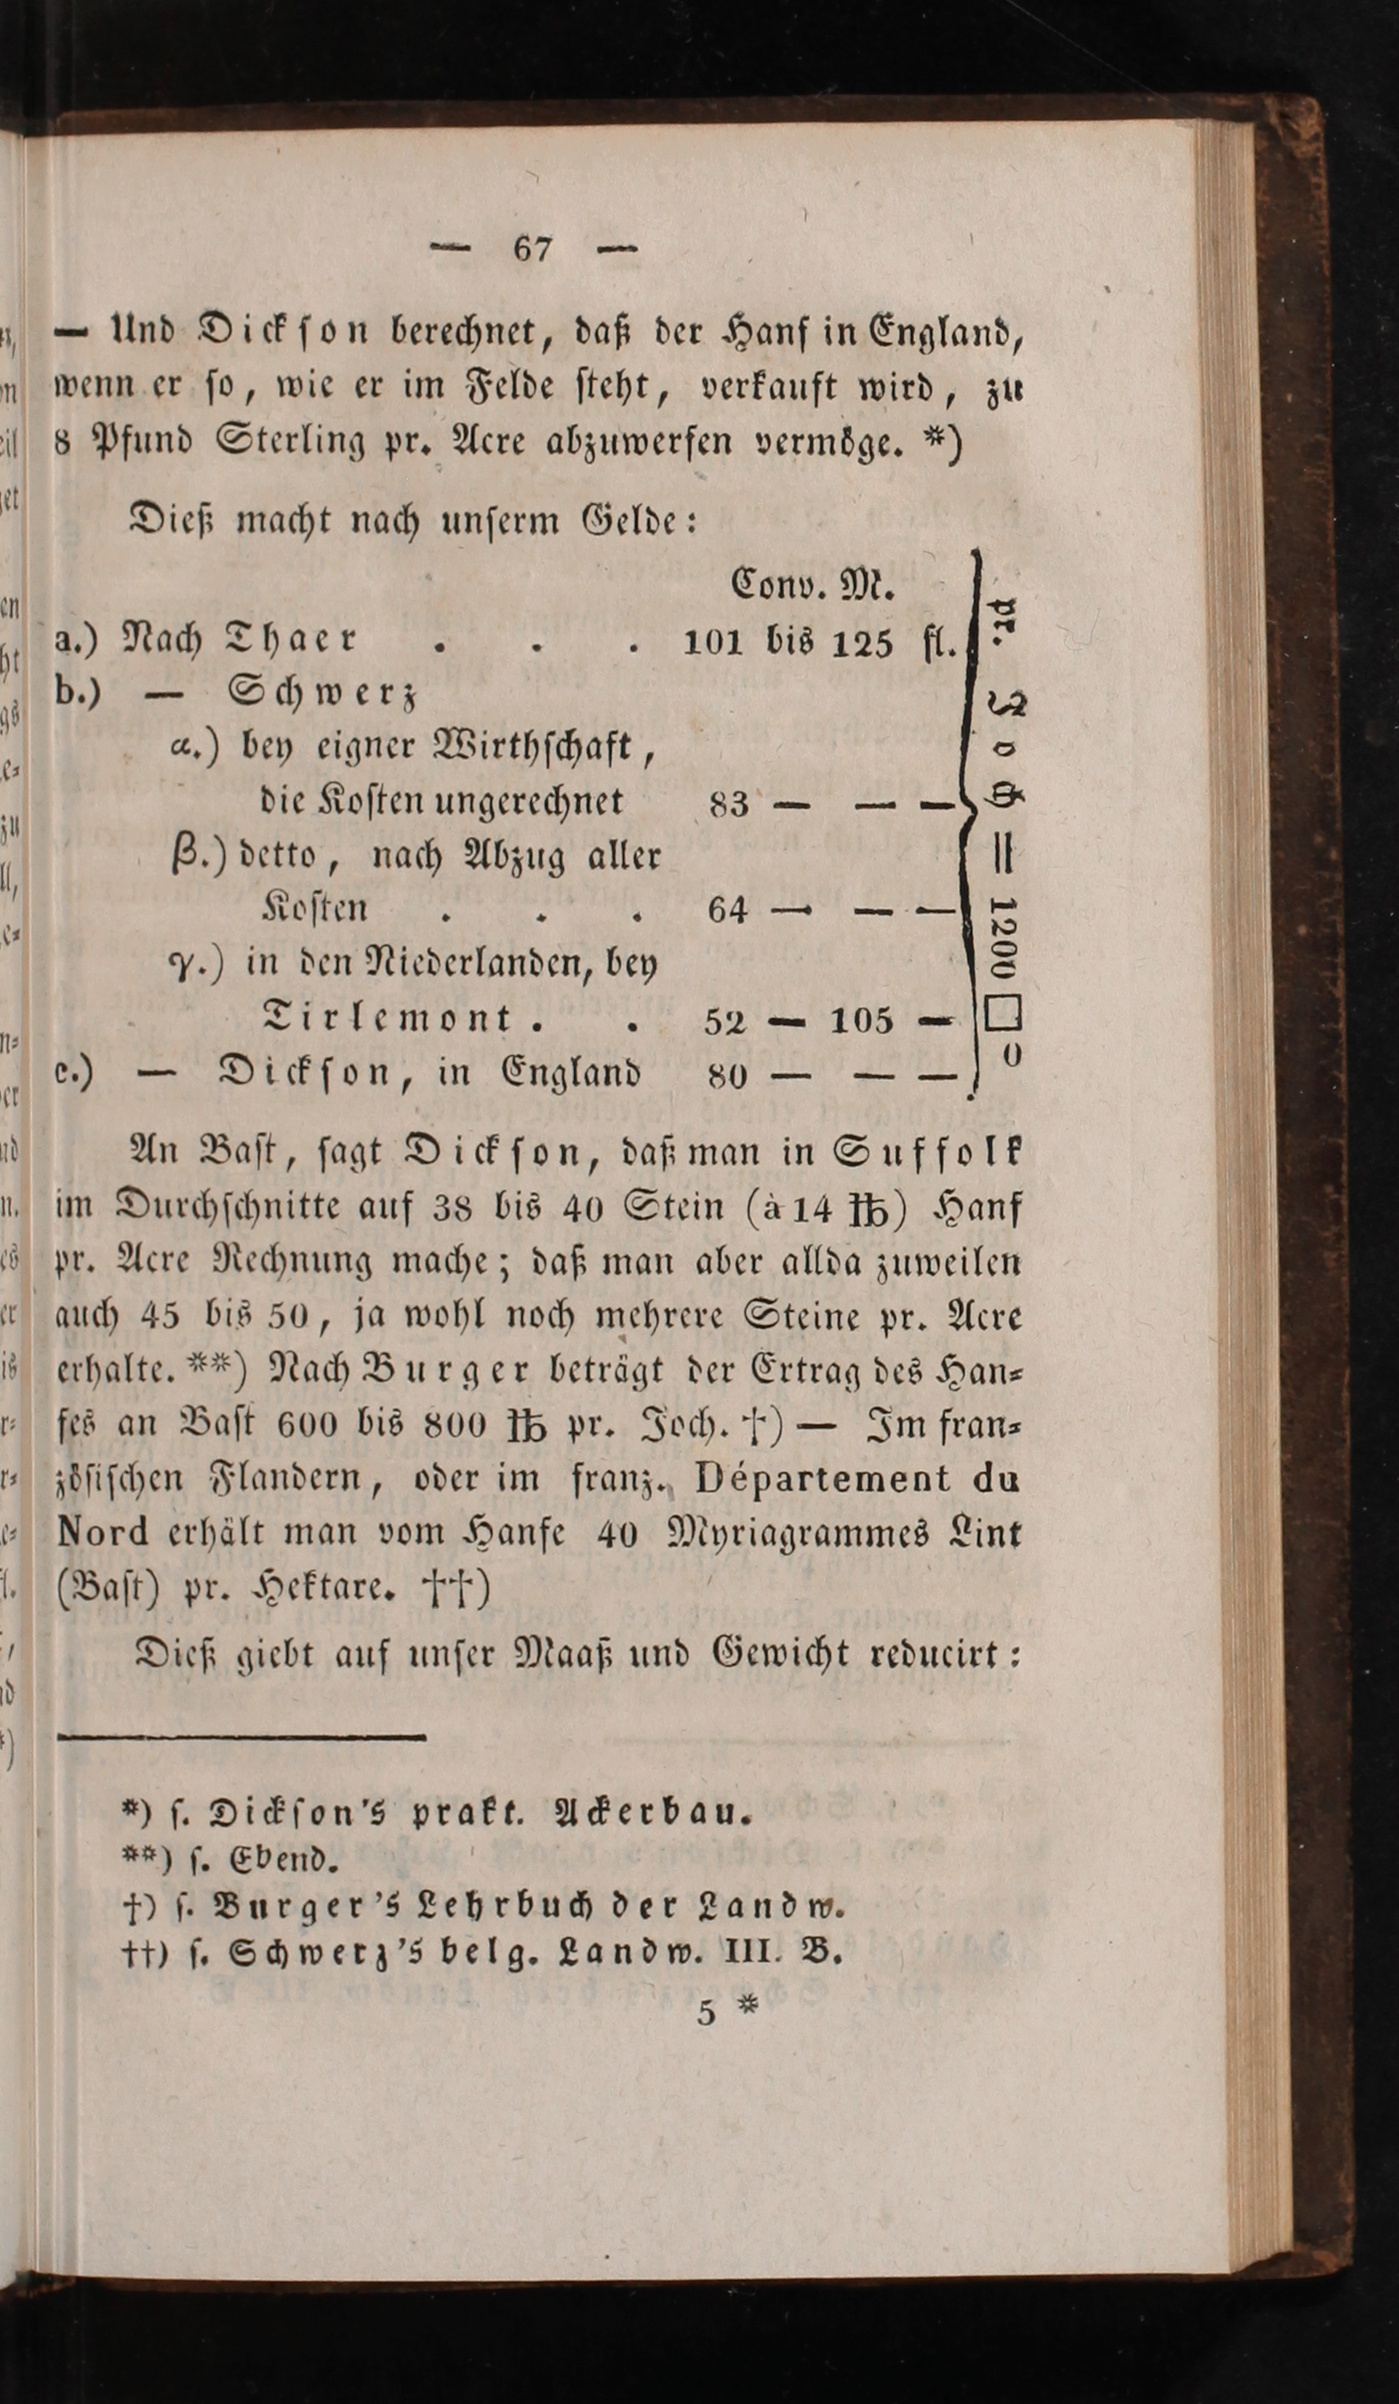 — 67 —
— Und Dickſon berechnet, daß der Hanf in England,
wenn er ſo, wie er im Felde ſteht, verkauft wird, zu
8 Pfund Sterling pr. Acre abzuwerfen vermöge. *)
Dieß macht nach unſerm Gelde:
Conv. M.
a.) Nach Thaer . . . 101 bis 125 fl.
b.) — Schwerz
α.) bey eigner Wirthſchaft,
die Koſten ungerechnet 83 — — —
β.) detto, nach Abzug aller
Koſten . . . 64 — — —
γ.) in den Niederlanden, bey
Tirlemont . . 52 — 105 —
c.) — Dickſon, in England 80 — — —
pr. Joch = 1200 □°
An Baſt, ſagt Dickſon, daß man in Suffolk
im Durchſchnitte auf 38 bis 40 Stein (à 14 ℔) Hanf
pr. Acre Rechnung mache; daß man aber allda zuweilen
auch 45 bis 50, ja wohl noch mehrere Steine pr. Acre
erhalte. **) Nach Burger beträgt der Ertrag des Han⸗
fes an Baſt 600 bis 800 ℔ pr. Joch. †) — Im fran⸗
zöſiſchen Flandern, oder im franz. Département du
Nord erhält man vom Hanfe 40 Myriagrammes Lint
(Baſt) pr. Hektare. ††)
Dieß giebt auf unſer Maaß und Gewicht reducirt:
*) ſ. Dickſon's prakt. Ackerbau.
**) ſ. Ebend.
†) ſ. Burger's Lehrbuch der Landw.
††) ſ. Schwerz's belg. Landw. III. B.
5 *